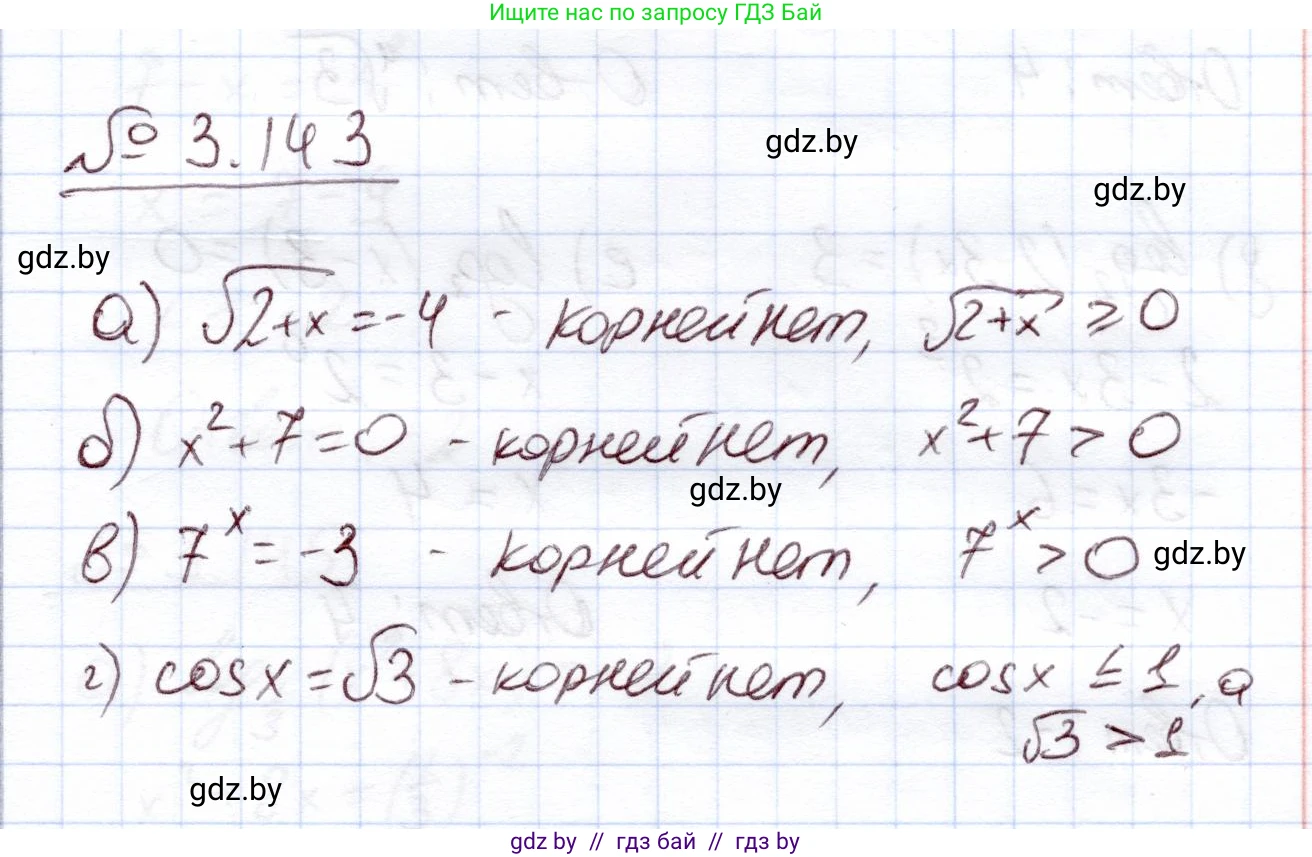 Ищите нас по запросу ГДЗ Бай
№ 3.143
gdz.by
gdz.by
gdz.by
а) √2+x = -4 - корней нет, √2+x ⩾ 0
б) x² + 7 = 0 - корней нет, x² + 7 > 0
gdz.by
в) 7ˣ = -3 - корней нет, 7ˣ > 0
gdz.by
г) cos x = √3 - корней нет, cos x ≤ 1, а
√3 > 1
gdz.by
gdz by // гдз бай // гдз by